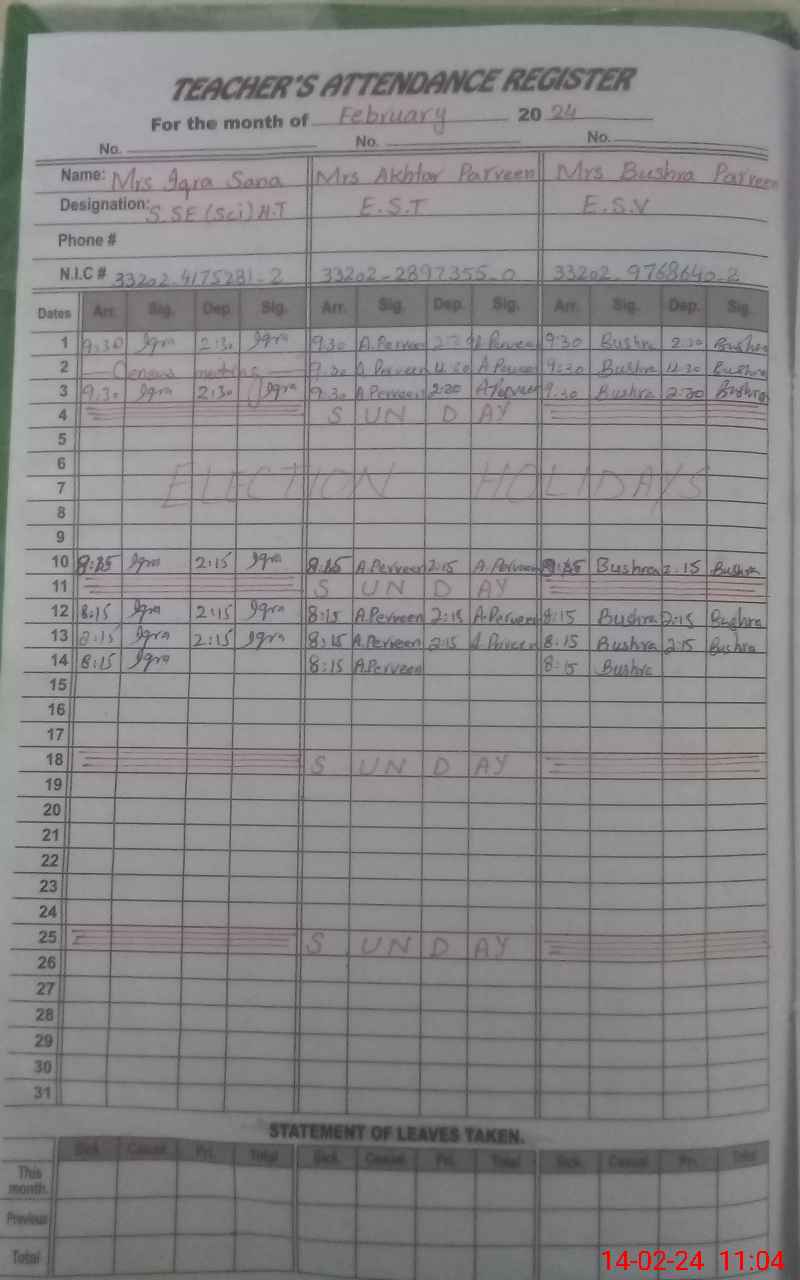 TEACHER'S ATTENDANCE REGISTER
For the month of February 2024
No. No. No.
Name: Mrs Iqra Sana Mrs Akhtar Parveen Mrs Bushra Parveen
Designation: S.SE (Sci) H.T E.S.T E.S.V
Phone #
N.I.C # 33202-4175281-2 33202-2897355-0 33202-9768640-2
Dates Arr. Sig. Dep. Sig. Arr. Sig. Dep. Sig. Arr. Sig. Dep. Sig.
1 9:30 Iqra 2:30 Iqra 9:30 A.Perveen 2:30 A.Perveen 9:30 Bushra 2:30 Bushra
2 Census meeting 9:30 A.Perveen 4:30 A Perveen 9:30 Bushra 4:30 Bushra
3 9:30 Iqra 2:30 Iqra 9:30 A.Perveen 2:30 A.Perveen 9:30 Bushra 2:30 Bushra
4 SUNDAY
5
6
7 ELECTION HOLIDAYS
8
9
10 8:15 Iqra 2:15 Iqra 8:15 A.Perveen 2:15 A.Perveen 8:15 Bushra 2:15 Bushra
11 SUNDAY
12 8:15 Iqra 2:15 Iqra 8:15 A.Perveen 2:15 A.Perveen 8:15 Bushra 2:15 Bushra
13 8:15 Iqra 2:15 Iqra 8:15 A.Perveen 2:15 A.Perveen 8:15 Bushra 2:15 Bushra
14 8:15 Iqra 8:15 A.Perveen 8:15 Bushra
15
16
17
18 SUNDAY
19
20
21
22
23
24
25 SUNDAY
26
27
28
29
30
31
STATEMENT OF LEAVES TAKEN.
Sick. Casual Pri. Total Sick. Casual Pri. Total Sick. Casual Pri. Total
This
month.
Previous
Total
14-02-24 11:04